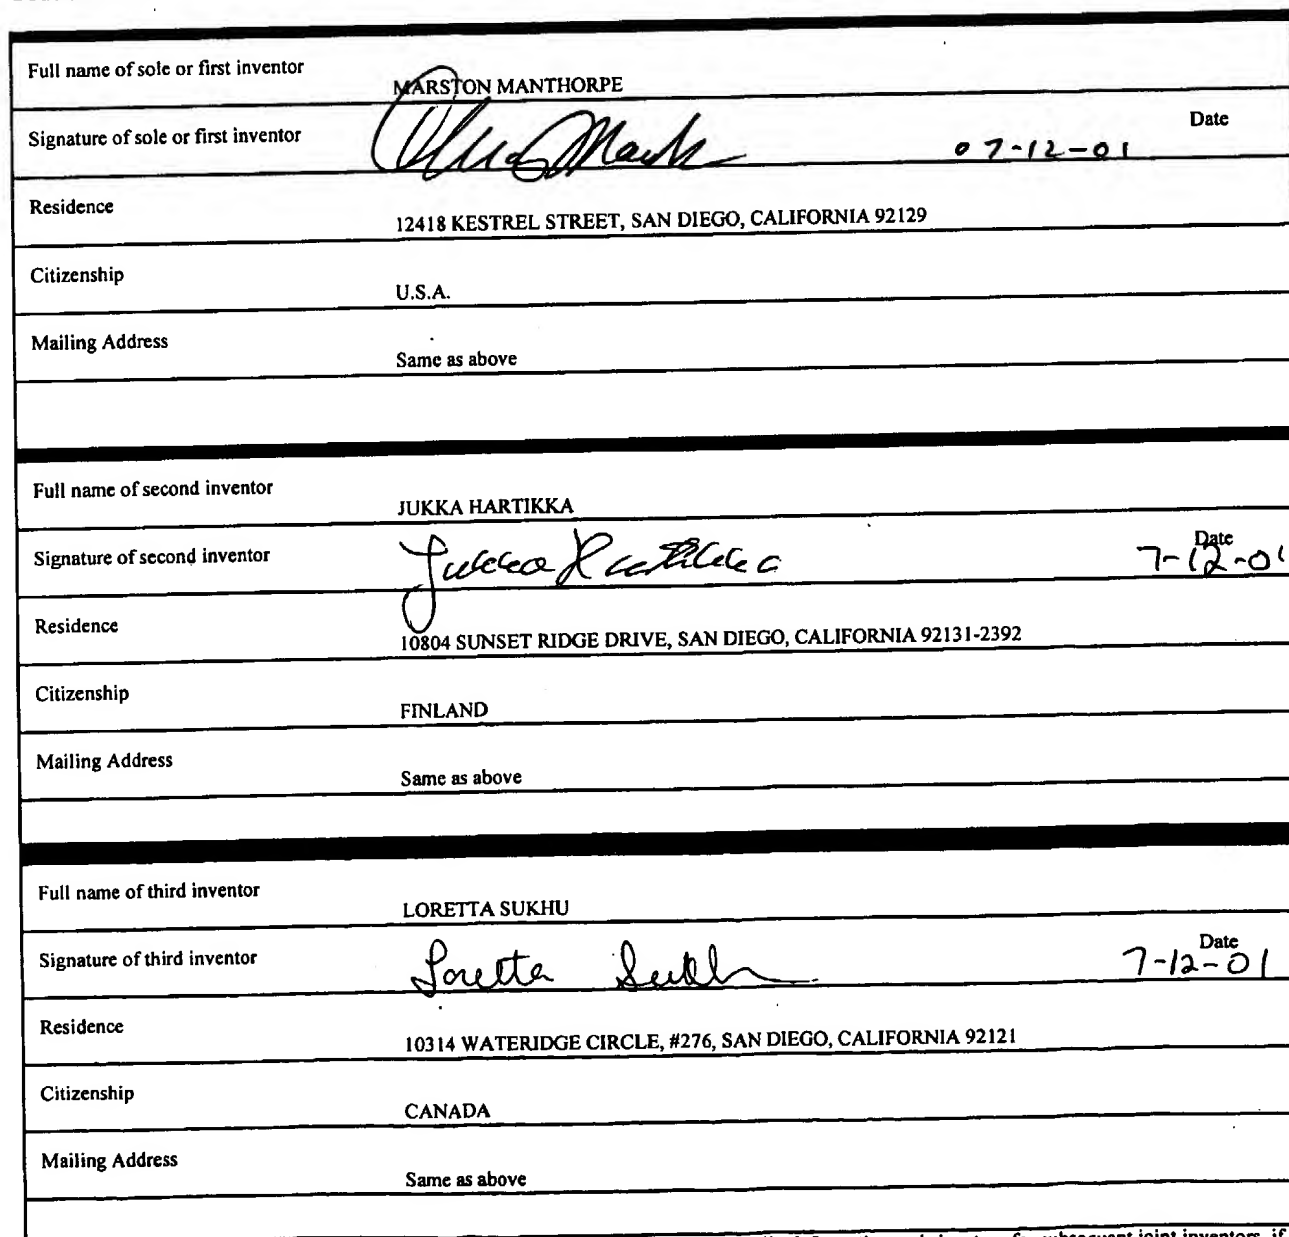 Full name of sole or first inventor
MARSTON MANTHORPE
Signature of sole or first inventor
Date
07-12-01
Residence
12418 KESTREL STREET, SAN DIEGO, CALIFORNIA 92129
Citizenship
U.S.A.
Mailing Address
Same as above
Full name of second inventor
JUKKA HARTIKKA
Signature of second inventor
Jukka Hartikka
Date
7-12-01
Residence
10804 SUNSET RIDGE DRIVE, SAN DIEGO, CALIFORNIA 92131-2392
Citizenship
FINLAND
Mailing Address
Same as above
Full name of third inventor
LORETTA SUKHU
Signature of third inventor
Loretta Sukhu
Date
7-12-01
Residence
10314 WATERIDGE CIRCLE, #276, SAN DIEGO, CALIFORNIA 92121
Citizenship
CANADA
Mailing Address
Same as above
subsequent joint inventors, if